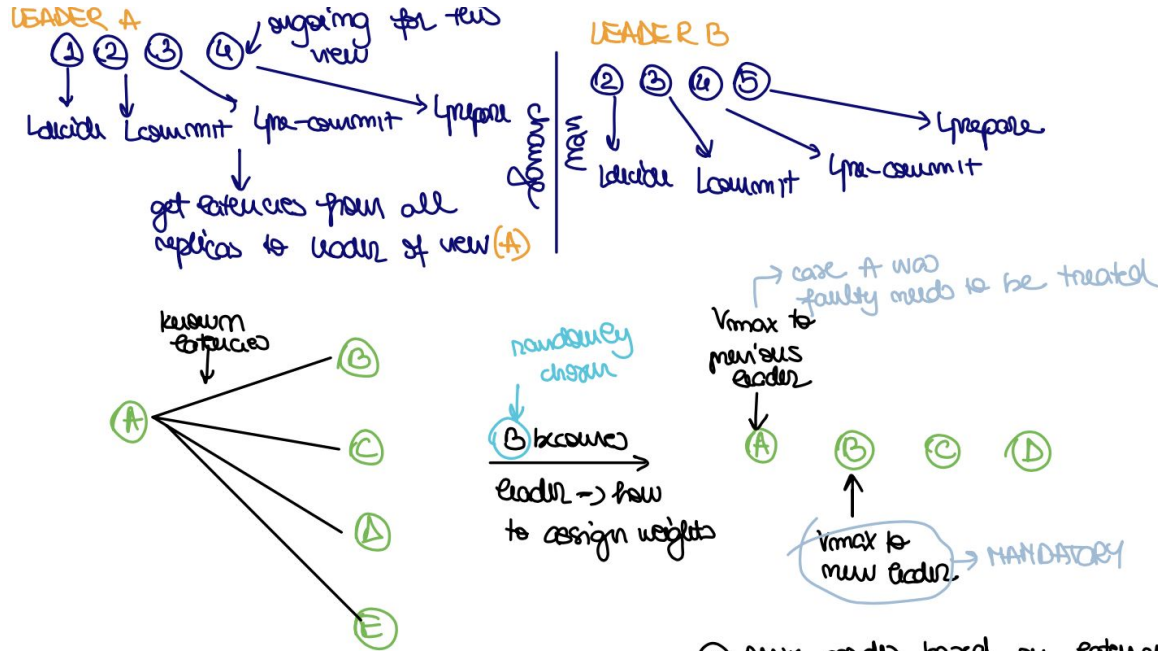 LEADER A
ongoing for this
view
1 2 3 4
↳decide ↳commit ↳pre-commit ↳prepare
get latencies from all
replicas to leader of view (A)
view
change
LEADER B
2 3 4 5
↳decide ↳commit ↳pre-commit ↳prepare
known
latencies
A
B
C
D
E
randomly
chosen
B becomes
leader -> how
to assign weights
→ case A was
faulty needs to be treated
Vmax to
previous
leader
A B C D
Vmax to
new leader → MANDATORY
based on